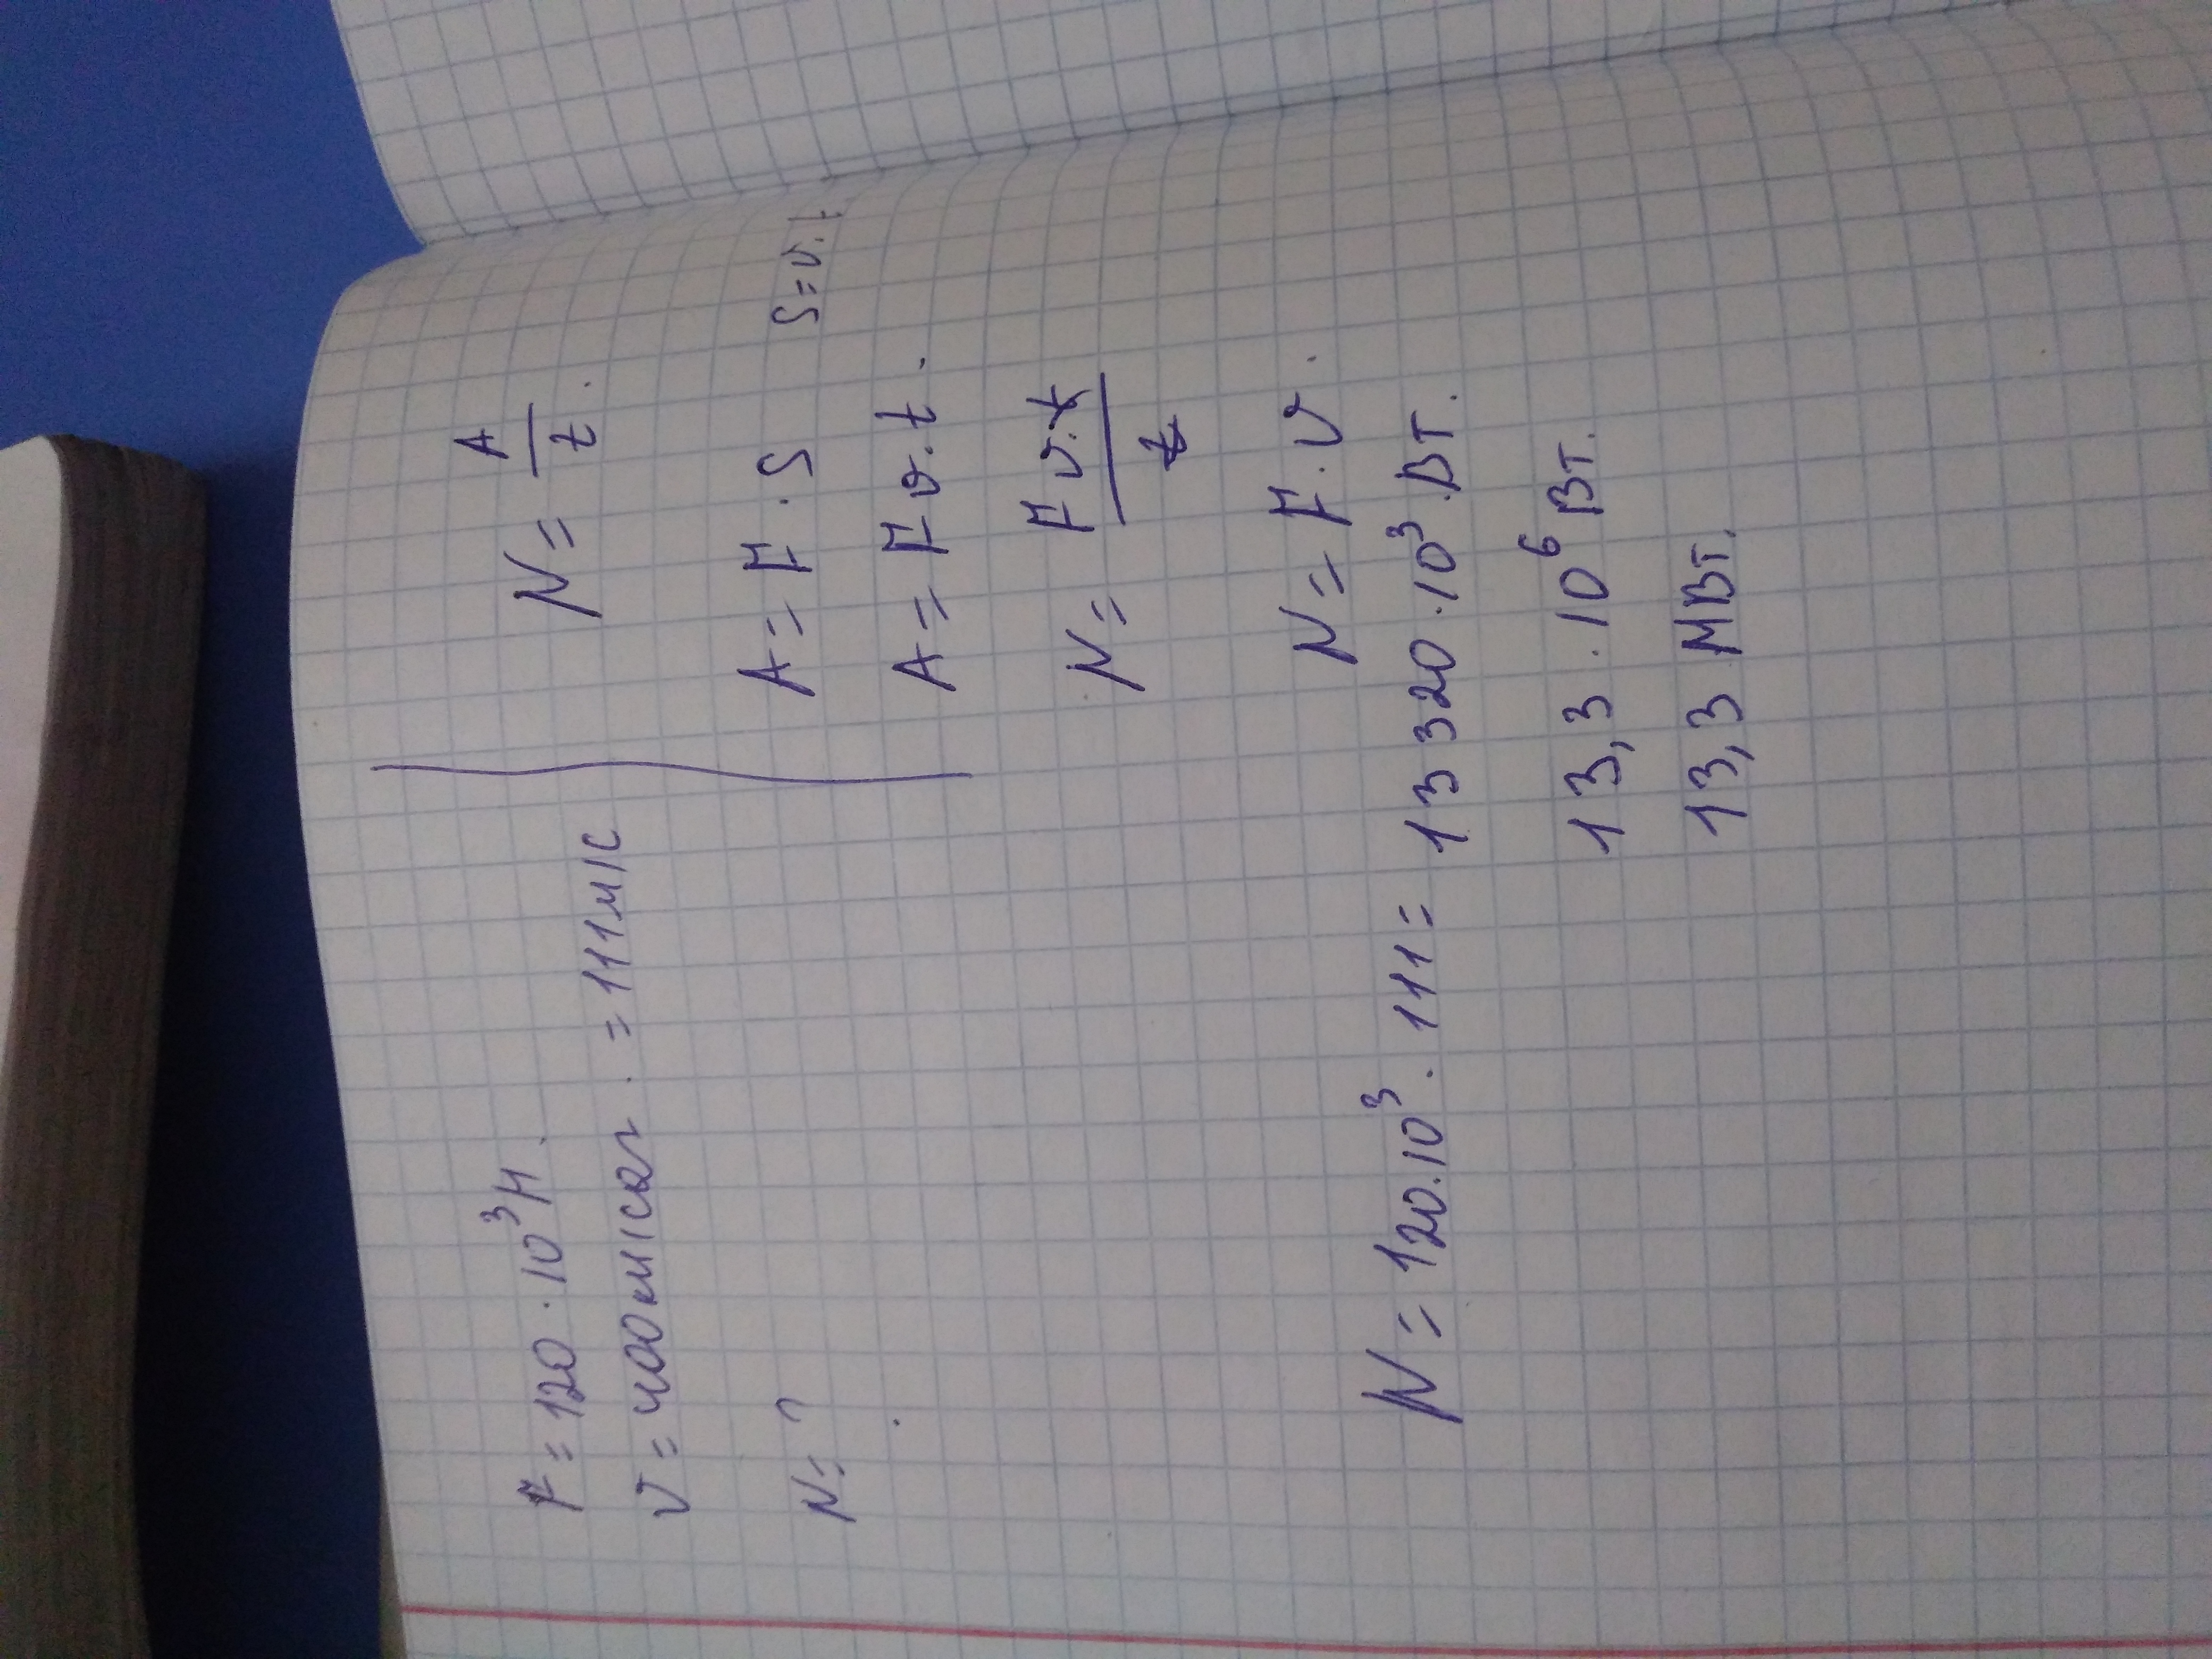 F = 120 · 10³ Н.
v = 400 км/саг . = 111 м/с
N = ?
N = A/t .
A = F · S S = v · t
A = F v · t .
N = F v · t / t
N = F · v .
N = 120 · 10³ · 111 = 13 320 · 10³ Вт .
13,3 · 10⁶ Вт .
13,3 МВт .